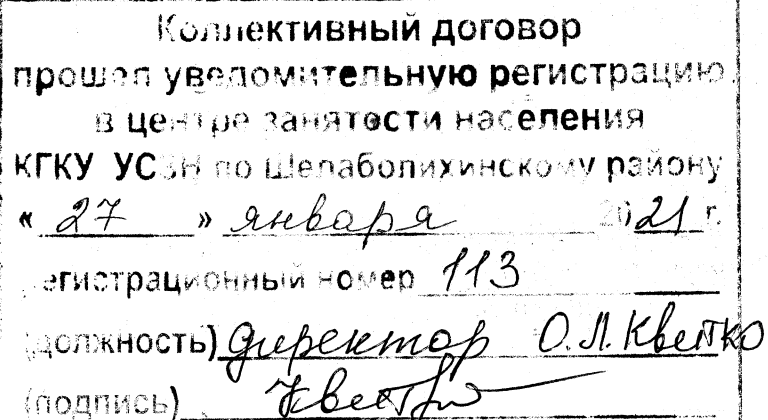 Коллективный договор
прошел уведомительную регистрацию
в центре занятости населения
КГКУ УСЗН по Шелаболихинскому району
« 27 » января 2021 г.
регистрационный номер 113
(должность) директор О.Л. Квитко
(подпись)